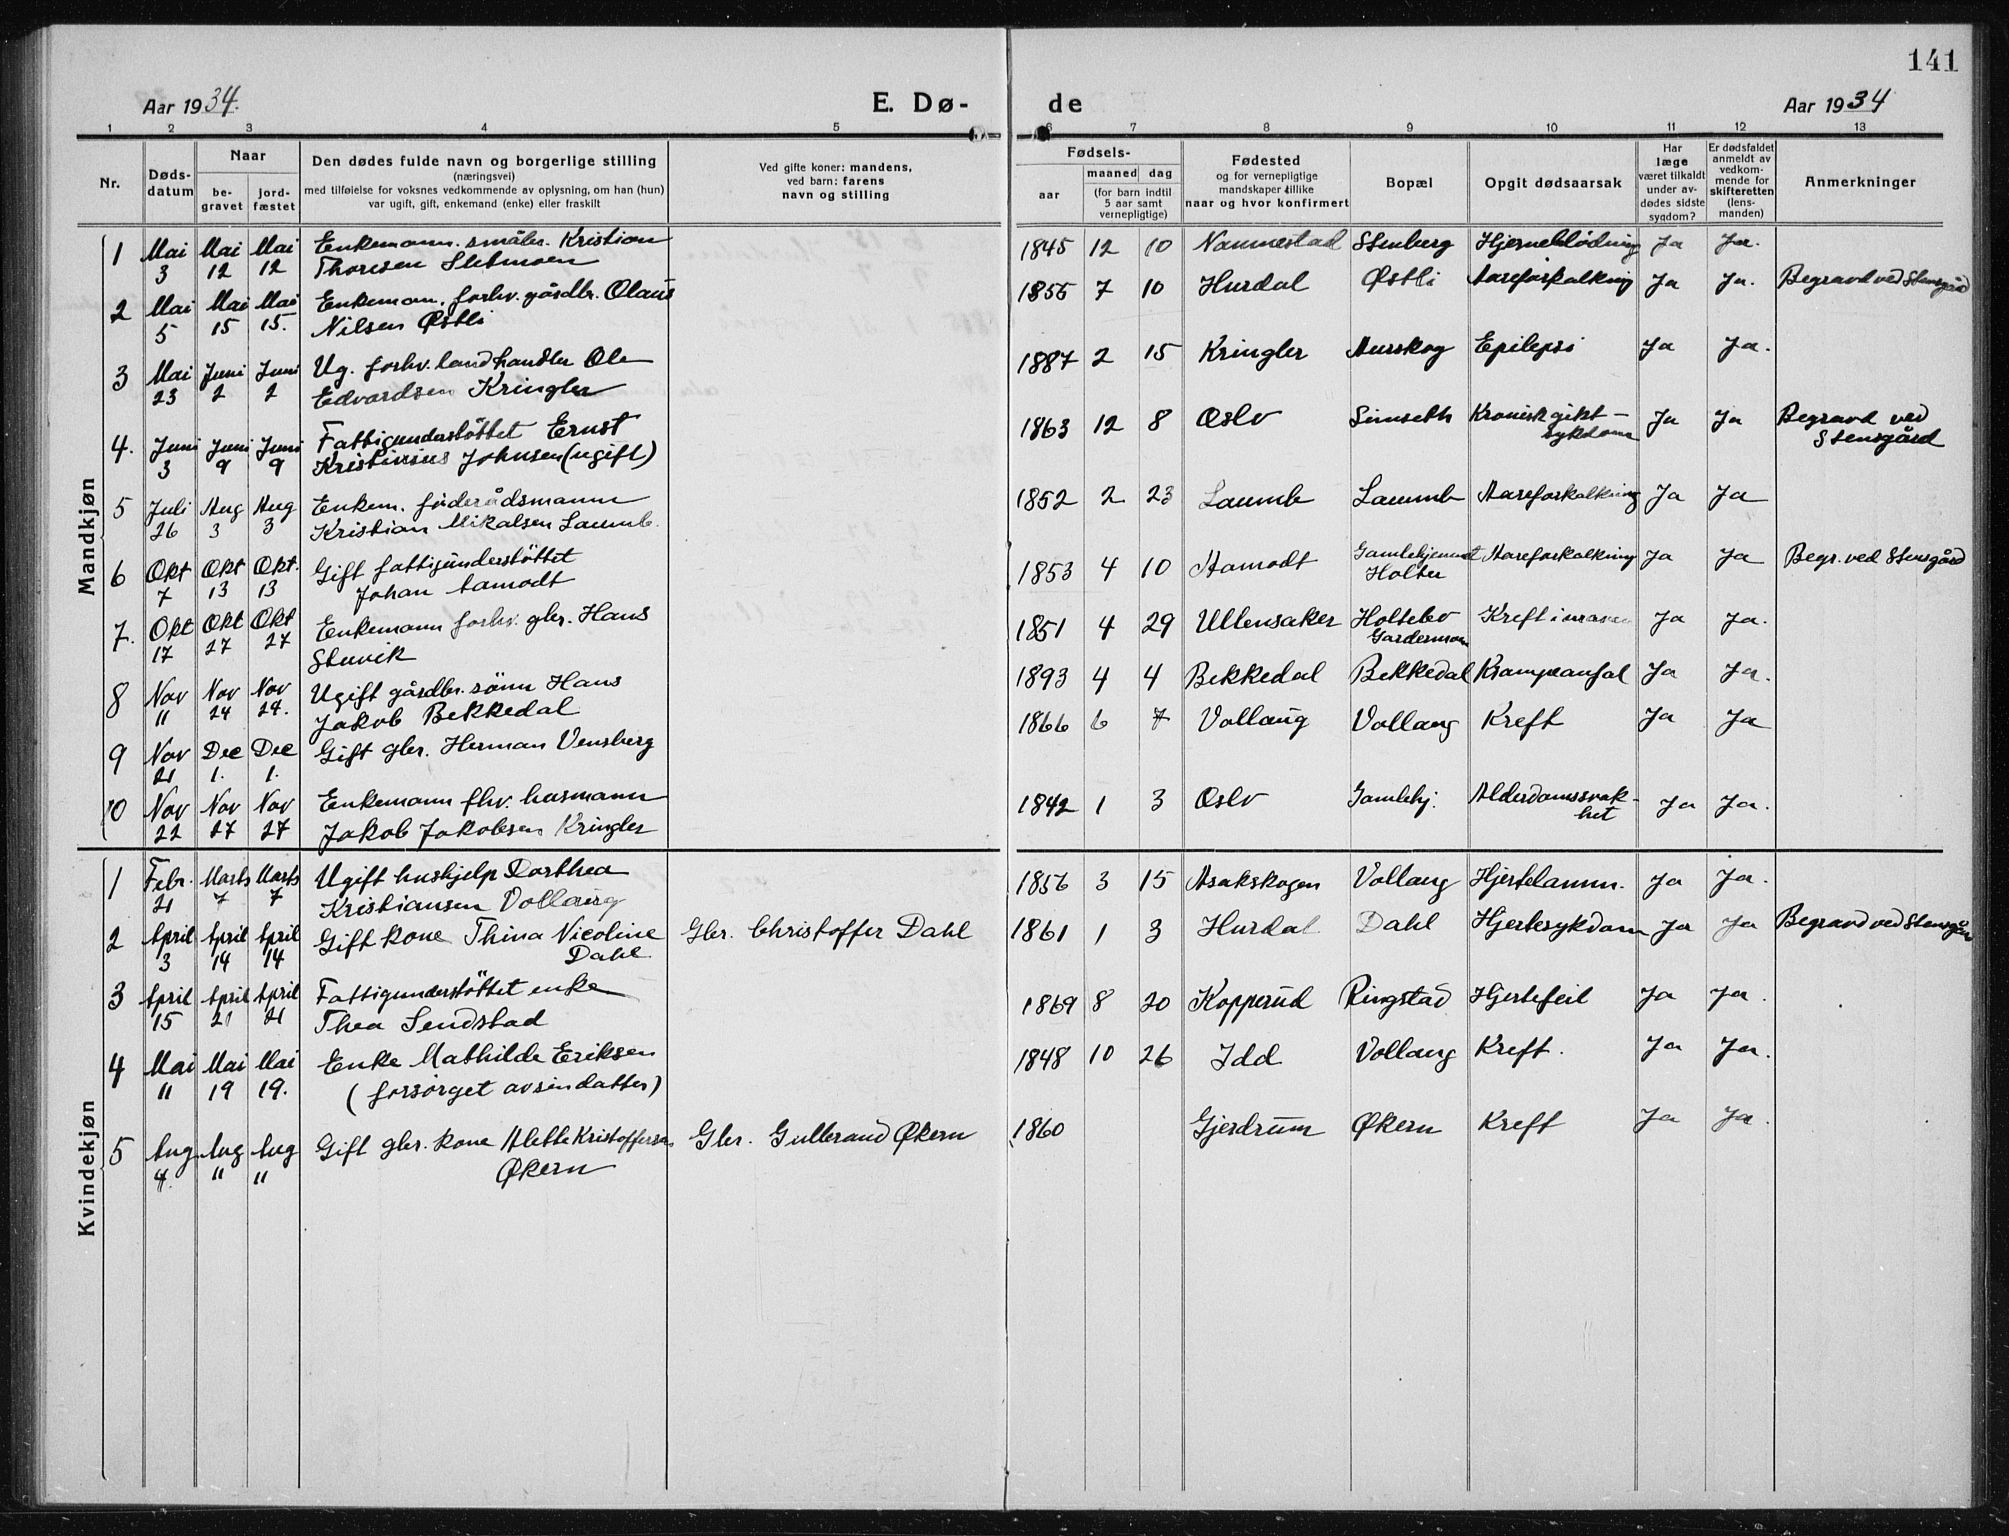 141
Aar 1934.
E. Dø-
de
Aar 1934
1 2 3 4 5 6 7 8 9 10 11 12 13
Nr.
Døds-
datum
Naar
be-
gravet
jord-
fæstet
Den dødes fulde navn og borgerlige stilling
(næringsvei)
med tilføielse for voksnes vedkommende av oplysning, om han (hun)
var ugift, gift, enkemand (enke) eller fraskilt
Ved gifte koner: mandens,
ved barn: farens
navn og stilling
Fødsels-
aar
maaned dag
(for barn indtil
5 aar samt
vernepligtige)
Fødested
og for vernepligtige
mandskaper tillike
naar og hvor konfirmert
Bopæl
Opgit dødsaarsak
Har
læge
været tilkaldt
under av-
dødes sidste
sygdom?
Er dødsfaldet
anmeldt av
vedkom-
mende for
skifteretten
(lens-
manden)
Anmerkninger
Mandkjøn
1 Mai Mai Mai Enkemann. småbr. Kristian 1845 12 10 Nannestad Stenberg Hjerneblödning Ja Ja.
3 12 12 Thoresen Sletmoen
2 Mai Mai Mai Enkeman. forhv. gårdbr. Olaus 1855 7 10 Hurdal Østli Aareforkalkning Ja Ja. Begravd ved Stensgård
5 15 15. Nilsen Østli
3 Mai Juni Juni Ug. forhv. landhandler Ole 1887 2 15 Kringler Aurskog Epilepsi Ja Ja.
23 2 2 Edvardsen Kringler
4. Juni Juni Juni Fattigunderstöttet Ernst 1863 12 8 Oslo Simseth Kronisk gikt- Ja Ja Begravd ved
3 9 9 Kristinius Johnsen (ugift) sykdom Stensgård
5 Juli Aug Aug Enkem. föderådsmann 1852 2 23 Laumb Laumb Aareforkalkning Ja Ja
26 3 3 Kristian Mikalsen Laumb.
6 Okt Okt Okt. Gift fattigunderstöttet 1853 4 10 Aamodt Gamlehjemmet Aareforkalkning Ja Ja Begr. ved Stensgård
7 13 13 Johan Aamodt Holter
7. Okt Okt Okt Enkemann forhv. gbr. Hans 1851 4 29 Ullensaker Holtebo Kreft i maven Ja Ja.
17 27 27 Stuvik Gardermoen
8 Nov Nov Nov Ugift gårdbr. sönn Hans 1893 4 4 Bekkedal Bekkedal Krampeanfal Ja Ja.
11 24 24. Jakob Bekkedal
9 Nov Dec Dec Gift gbr. Herman Vensberg 1866 6 7 Vollaug Vollaug Kreft Ja Ja
21 1. 1.
10 Nov Nov Nov Enkemann fhv. husmann 1842 1 3 Oslo Gamlehj. Alderdomssvak- Ja Ja.
22 27 27 Jakob Jakobsen Kringler het
Kvindekjøn
1 Febr. Marts Marts Ugift hushjelp Dorthea 1856 3 15 Asakskogen Vollaug Hjertelamm. Ja Ja.
21 7 7 Kristiansen Vollaug
2 April April April Gift kone Thina Nicoline Gbr. Christoffer Dahl 1861 1 3 Hurdal Dahl Hjertesykdom Ja Ja Begravd ved Stensgård
3 14 14 Dahl
3 April April April Fattigunderstöttet enke 1869 8 20 Kopperud Ringstad Hjertefeil Ja Ja.
15 21 21 Thea Sendstad
4 Mai Mai Mai Enke Mathilde Eriksen 1848 10 26 Idd Vollaug Kreft. Ja Ja.
11 19 19. (forsörget av sin datter)
5 Aug Aug Aug Gift gbr. kone Alette Kristoffersen Gbr. Gulbrand Økern 1860 Gjerdrum Økern Kreft Ja Ja.
4. 11 11 Økern